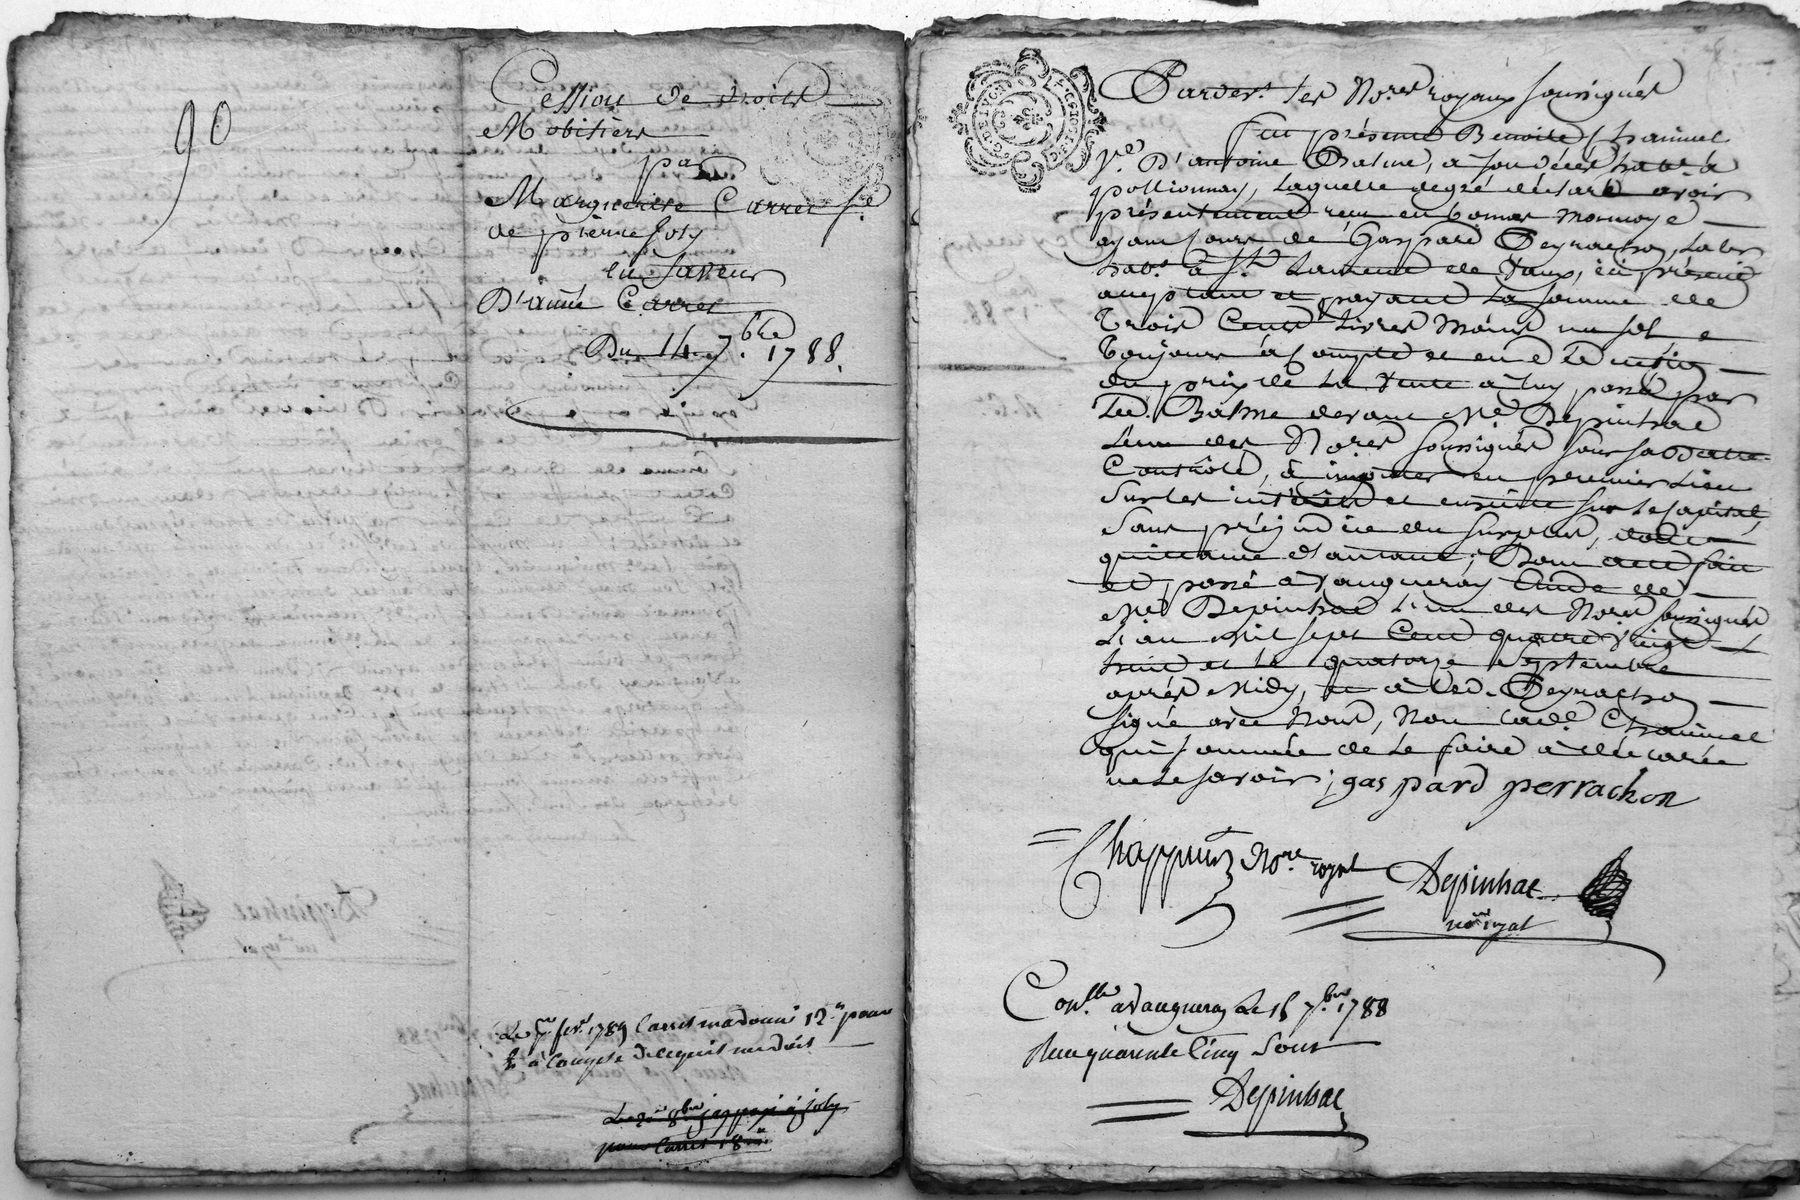 90
Cession de droits
Mobiliers
par
Marguerite Carret fe
de pierre joly
en faveur
D'anne Carret
Du 14 7.bre 1788.
Le 7 fevr 1789 Carret m'a donné 12 pour
à Compte de ce qu'il me doit
Le 8bre jay payé à joly
pour Carret 18
Pardevt les No.res royaux soussignés
Fut présente Benoite Chainuel
v.e D'antoine Balme, à son décès habt. à
pollionnay, laquelle de gré déclare avoir
présentement reçu en bonne monnoye
ayant cours de Gaspard Peyrachon, labr
habt. à St. Laurent de Vaux, ici présent
acceptant et payant la somme de
Trois Cents livres Moins un sol
toujours à Compte et en déduction
du prix de la vente à luy passé par
led. Balme devant Me Depinhac
l'un des No.res soussignés sous sa datte
Controlé, à imputer en premier lieu
sur les intérêts et ensuite sur le Capital,
sans préjudice du surplus, dont
quittance d'autant; Dont acte fait
et passé à vaugneray Etude de
Me Depinhac l'un des No.res soussignés
L'an mil sept Cent quatre vingt
huit et le quatorze septembre
après Midy, et a led. Peyrachon
signé avec Nous, Non lad.e Chainuel
qui sommée de le faire a déclarée
ne le savoir; gas pard perrachon
Chappuis No.re royal Depinhac
no.re royal
Con.llé à Vaugneray Le 15 7.bre 1788
Reçu quarente Cinq Sous
Depinhac